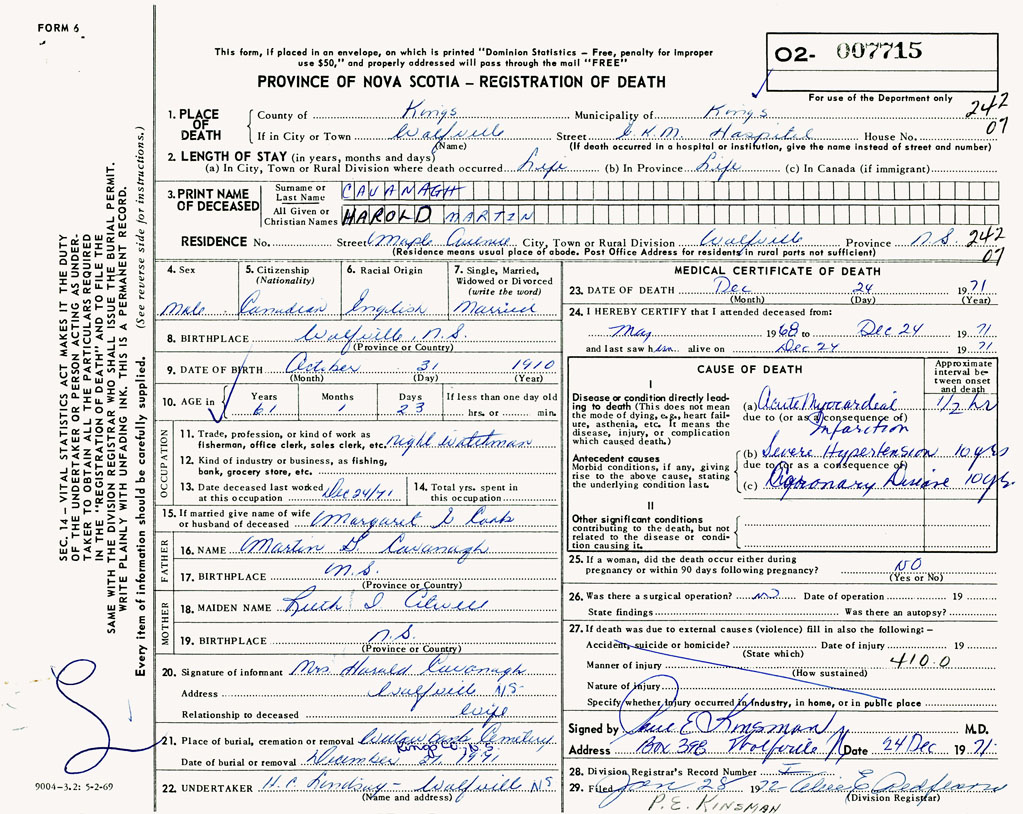 FORM 6
This form, if placed in an envelope, on which is printed "Dominion Statistics – Free, penalty for improper
use $50," and properly addressed will pass through the mail "FREE"
PROVINCE OF NOVA SCOTIA – REGISTRATION OF DEATH
02- 007715
For use of the Department only
242
07
1. PLACE OF DEATH
County of Kings Municipality of Kings
If in City or Town Wolfville Street E.K.M. Hospital House No.
(Name) (If death occurred in a hospital or institution, give the name instead of street and number)
2. LENGTH OF STAY (in years, months and days)
(a) In City, Town or Rural Division where death occurred Life (b) In Province Life (c) In Canada (if immigrant)
3. PRINT NAME OF DECEASED
Surname or Last Name CAVANAGH
All Given or Christian Names HAROLD MARTIN
RESIDENCE No. Street Maple Avenue City, Town or Rural Division Wolfville Province N.S. 242
07
(Residence means usual place of abode. Post Office Address for residents in rural parts not sufficient)
4. Sex
Male
5. Citizenship (Nationality)
Canadian
6. Racial Origin
English
7. Single, Married, Widowed or Divorced (write the word)
Married
8. BIRTHPLACE Wolfville, N.S.
(Province or Country)
9. DATE OF BIRTH October 31 1910
(Month) (Day) (Year)
10. AGE in Years Months Days If less than one day old
61 1 23 hrs. or min.
OCCUPATION
11. Trade, profession, or kind of work as
fisherman, office clerk, sales clerk, etc. night watchman
12. Kind of industry or business, as fishing,
bank, grocery store, etc.
13. Date deceased last worked at this occupation Dec 24/71
14. Total yrs. spent in this occupation
15. If married give name of wife
or husband of deceased Margaret
FATHER
16. NAME Martin Cavanagh
17. BIRTHPLACE N.S.
(Province or Country)
MOTHER
18. MAIDEN NAME Ruth
19. BIRTHPLACE N.S.
(Province or Country)
20. Signature of informant Mrs Harold Cavanagh
Address Wolfville NS
Relationship to deceased Wife
21. Place of burial, cremation or removal Willowbank Cemetery
Kings Co., N.S.
Date of burial or removal December 27 1971
22. UNDERTAKER Lindsay – Wolfville NS
(Name and address)
MEDICAL CERTIFICATE OF DEATH
23. DATE OF DEATH Dec 24 1971
(Month) (Day) (Year)
24. I HEREBY CERTIFY that I attended deceased from:
May 1968 to Dec 24 1971
and last saw him alive on Dec 24 1971
CAUSE OF DEATH
Approximate interval between onset and death
I
Disease or condition directly leading to death (This does not
mean the mode of dying, e.g., heart failure, asthenia, etc. It means the
disease, injury, or complication which caused death.)
(a) Acute Myocardial Infarction 1/2 hr
due to (or as a consequence of)
Antecedent causes
Morbid conditions, if any, giving
rise to the above cause, stating
the underlying condition last.
(b) Severe Hypertension 10 yrs
due to (or as a consequence of)
(c) Coronary Disease 10 yrs.
II
Other significant conditions
contributing to the death, but not
related to the disease or condition causing it.
25. If a woman, did the death occur either during
pregnancy or within 90 days following pregnancy? NO
(Yes or No)
26. Was there a surgical operation? NO Date of operation 19
State findings Was there an autopsy?
27. If death was due to external causes (violence) fill in also the following: –
Accident, suicide or homicide? Date of injury 19
(State which)
Manner of injury 410.0
(How sustained)
Nature of injury
Specify whether injury occurred in industry, in home, or in public place
Signed by Paul E Kinsman M.D.
Address Box 398 Wolfville Date 24 Dec 1971.
28. Division Registrar's Record Number
29. Filed Jan 28 1972
(Division Registrar)
P.E. KINSMAN
SEC. 14 – VITAL STATISTICS ACT MAKES IT THE DUTY
OF THE UNDERTAKER OR PERSON ACTING AS UNDERTAKER
TO OBTAIN ALL THE PARTICULARS REQUIRED
IN THE "REGISTRATION OF DEATH" AND TO FILE THE
SAME WITH THE DIVISION REGISTRAR WHO SHALL ISSUE THE BURIAL PERMIT.
WRITE PLAINLY WITH UNFADING INK. THIS IS A PERMANENT RECORD.
Every item of information should be carefully supplied. (See reverse side for instructions.)
9004-3.2: 5-2-69